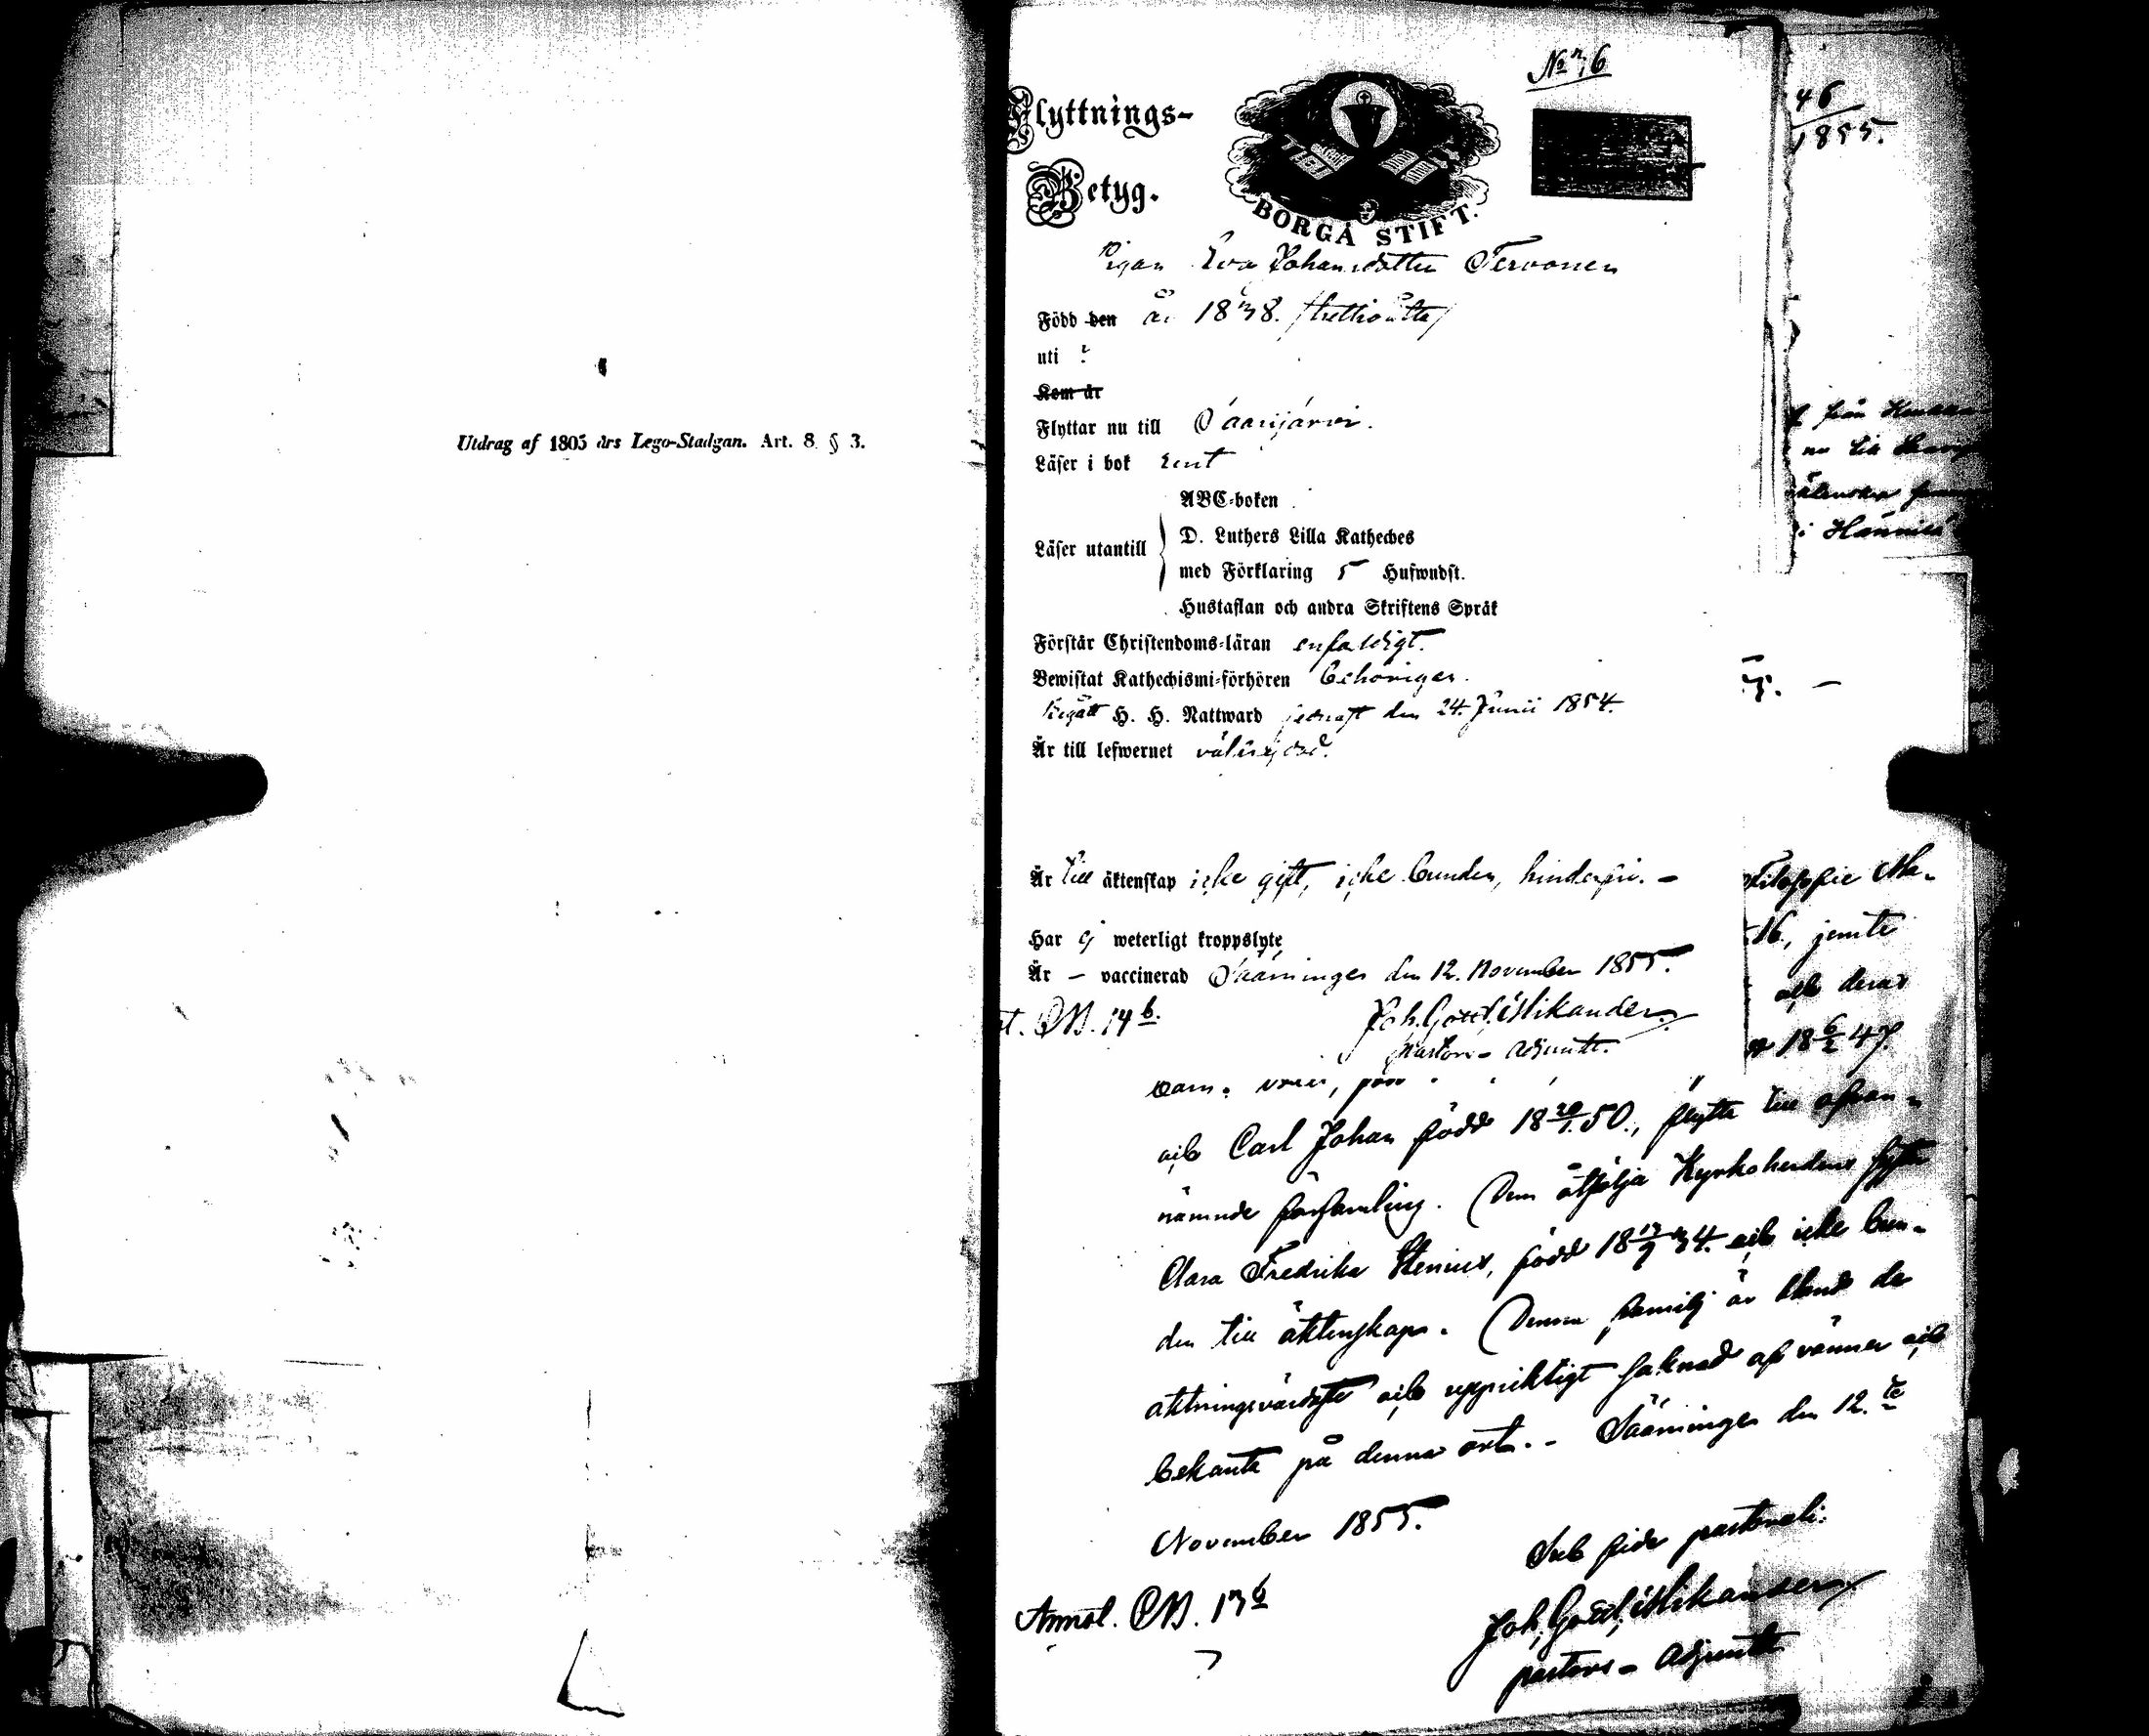 Utdrag af 1805 års Lego-Stadgan. Art. 8 § 3.
46
1855.
Flyttnings-
Betyg.
BORGÅ STIFT.
Pigan Eva Johansdotter Tervonen
Född den år 1838. /trettioåtta/
uti ?
Kom år
Flyttar nu till
Läser i bok rent
ABC-boken
Läser utantill
D. Luthers Lilla Katheches
med Förklaring 5 Hufwudst.
Hustaflan och andra Skriftens Språk
Förstår Christendoms-läran enfaldigt.
Bewistat Kathechismi-förhören behörigen.
Begått H. H. Nattward senast den 24. Junii 1854.
Är till lefwernet
Är till äktenskap icke gift, icke bunden, hinderfri. -
Har ej weterligt kroppslyte
Är - vaccinerad Sääminge den 12. November 1855.
CB. 14 b.
Joh. Gottl. Wikander
Pastors-Adjunkt.
16, jemte
och deras
18 6/2 47.
och Carl Johan född 18 20/1 50., flytta till ofvan-
nämnde församling. Dem åtfölja Kyrkoherdens syster
Clara Fredrika Stenius, född 18 17/9 34. och icke bun-
den till äktenskap. Denna familj är bland de
aktningsvärdaste och uppriktigt saknad af vänner och
bekanta på denna ort. - Sääminge den 12.te
November 1855.
Sub fide pastorali.
Joh. Gottl. Wikander
pastors-Adjunkt
Annot. CB. 13 b